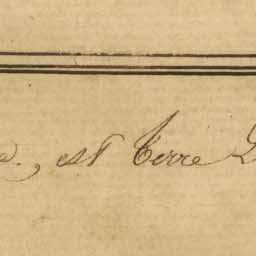 est terre